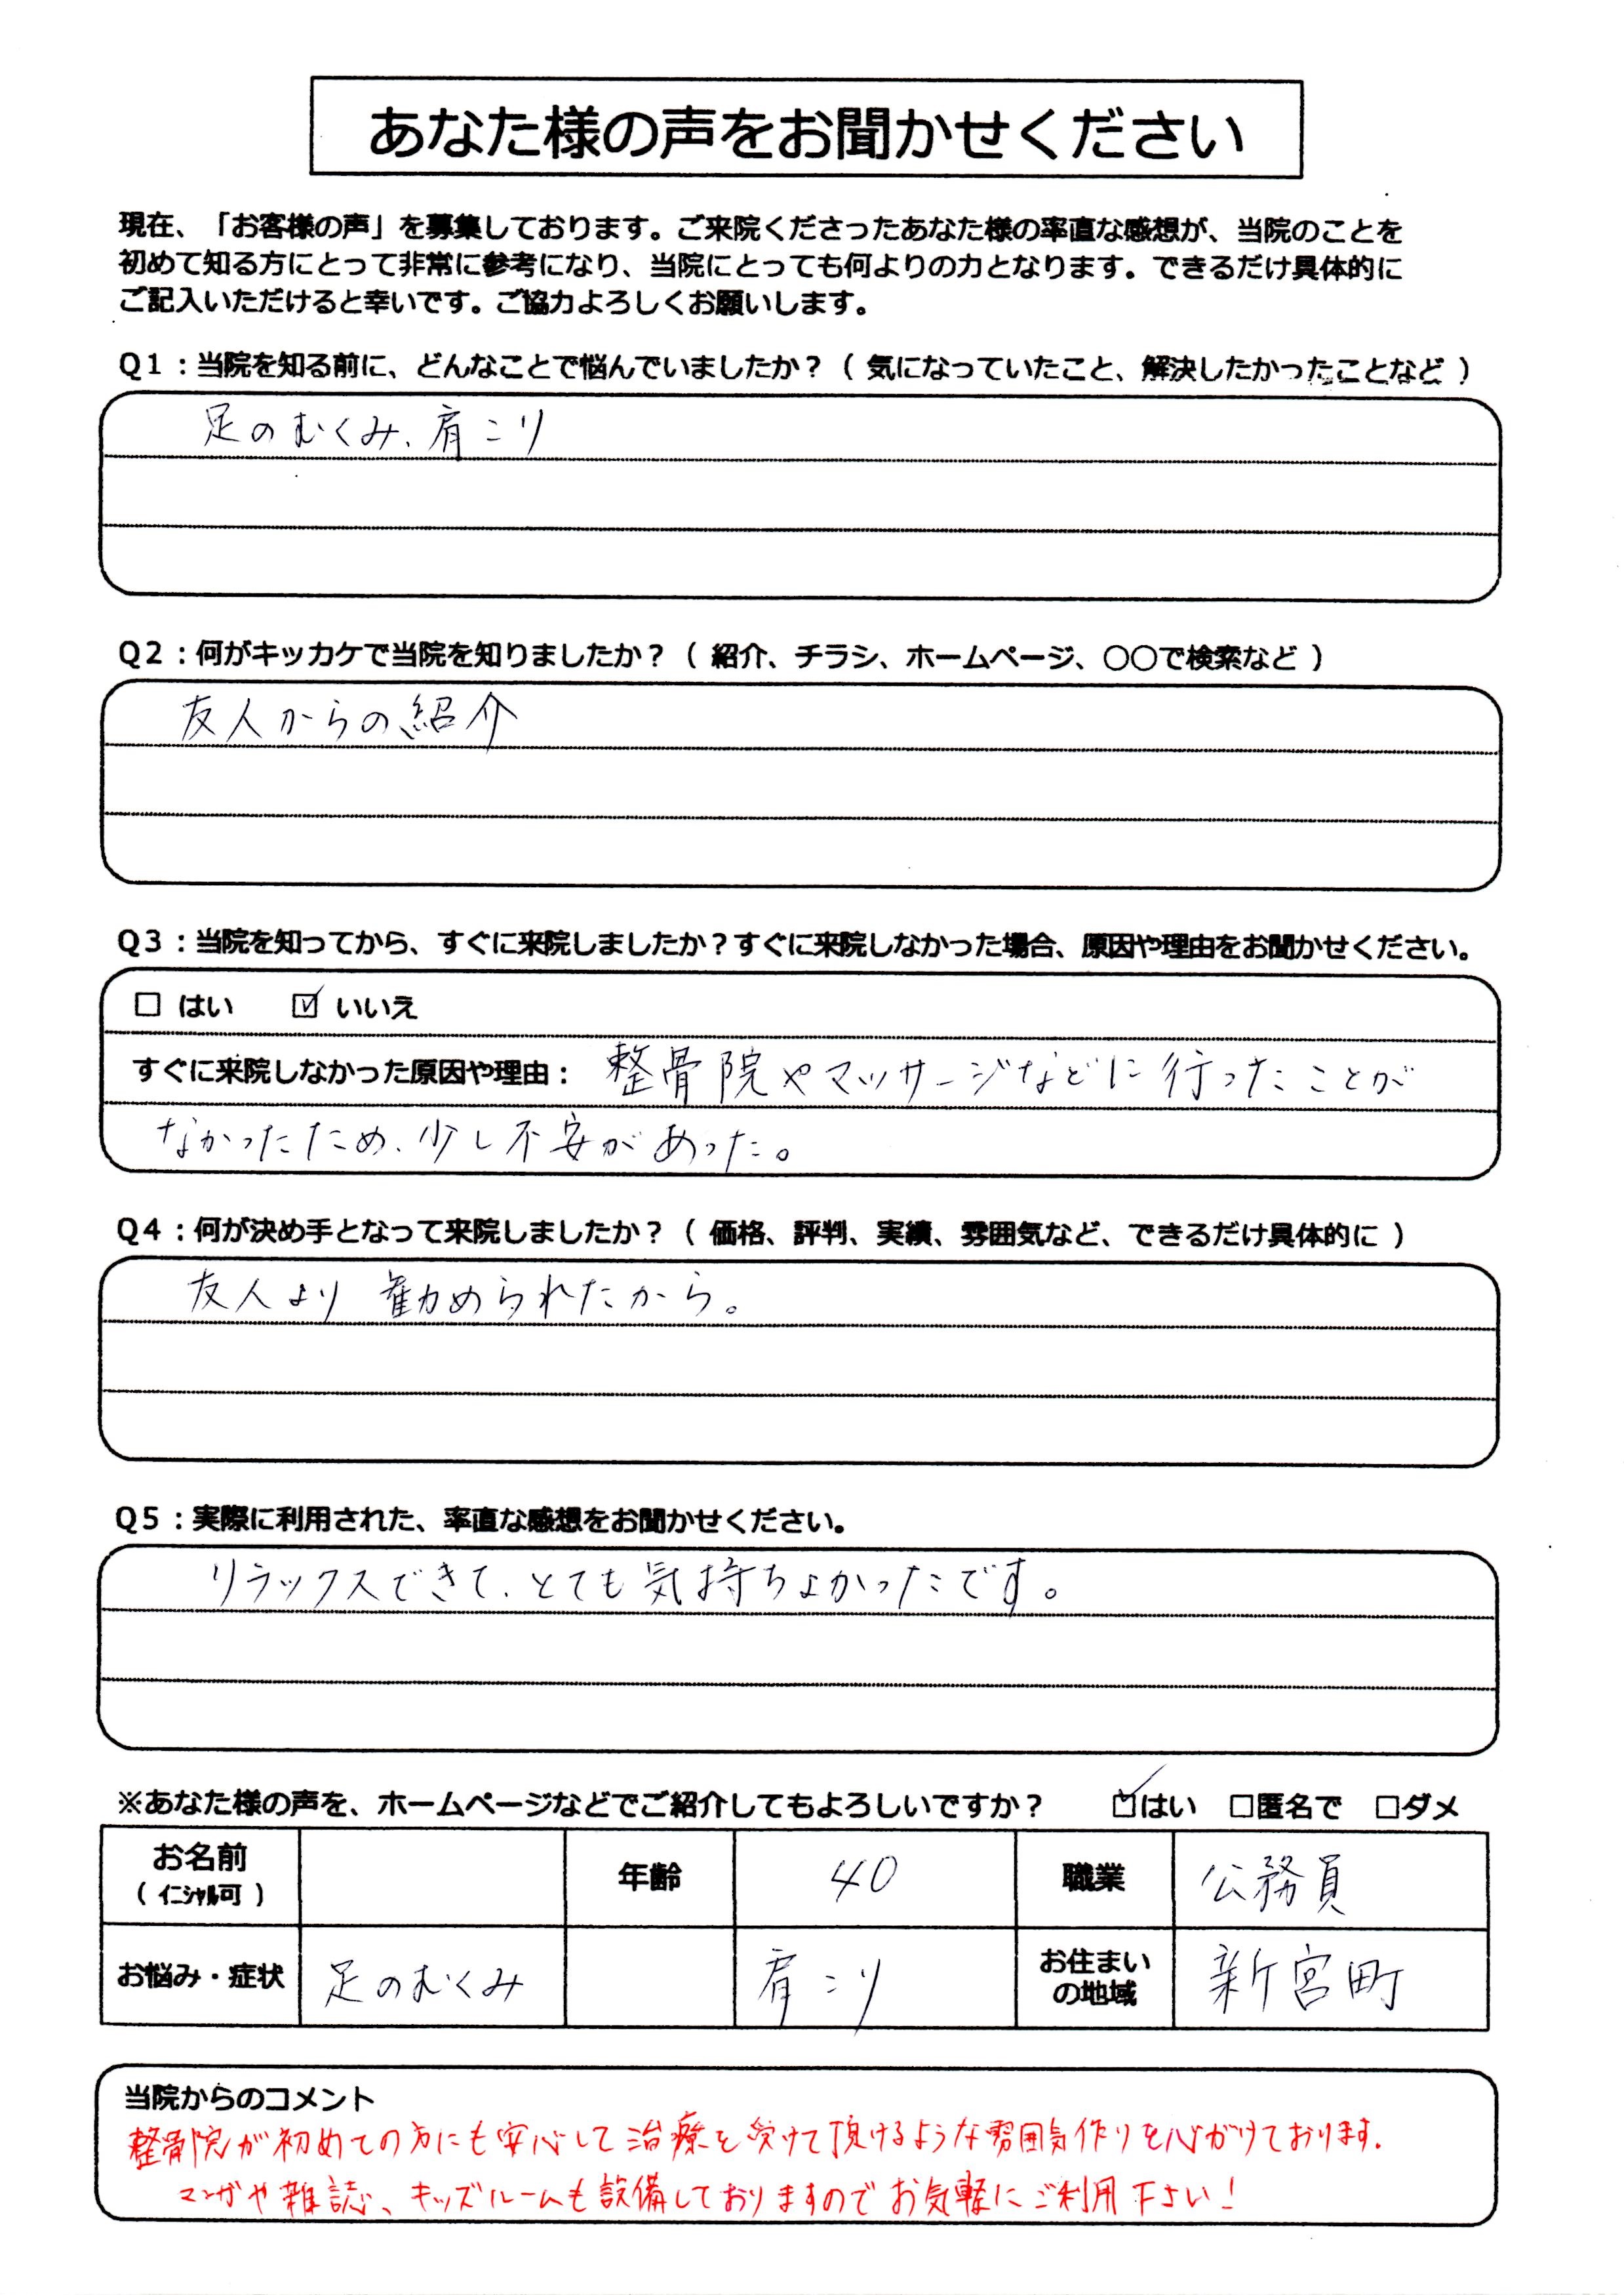 あなた様の声をお聞かせください
現在、「お客様の声」を募集しております。ご来院くださったあなた様の率直な感想が、当院のことを
初めて知る方にとって非常に参考になり、当院にとっても何よりの力となります。できるだけ具体的に
ご記入いただけると幸いです。ご協力よろしくお願いします。
Q1：当院を知る前に、どんなことで悩んでいましたか？（ 気になっていたこと、解決したかったことなど ）
足のむくみ、肩こり
Q2：何がキッカケで当院を知りましたか？（ 紹介、チラシ、ホームページ、○○で検索など ）
友人からの紹介
Q3：当院を知ってから、すぐに来院しましたか？すぐに来院しなかった場合、原因や理由をお聞かせください。
□ はい ☑ いいえ
すぐに来院しなかった原因や理由： 整骨院やマッサージなどに行ったことが
なかったため、少し不安があった。
Q4：何が決め手となって来院しましたか？（ 価格、評判、実績、雰囲気など、できるだけ具体的に ）
友人より勧められたから。
Q5：実際に利用された、率直な感想をお聞かせください。
リラックスできて、とても気持ちよかったです。
※あなた様の声を、ホームページなどでご紹介してもよろしいですか？ ☑はい □匿名で □ダメ
お名前 年齢 40 職業 公務員
（ イニシャル可 ）
お悩み・症状 足のむくみ 肩こり お住まいの地域 新宮町
当院からのコメント
整骨院が初めての方にも安心して治療を受けて頂けるような雰囲気作りを心がけております。
マンガや雑誌、キッズルームも設備しておりますのでお気軽にご利用下さい！